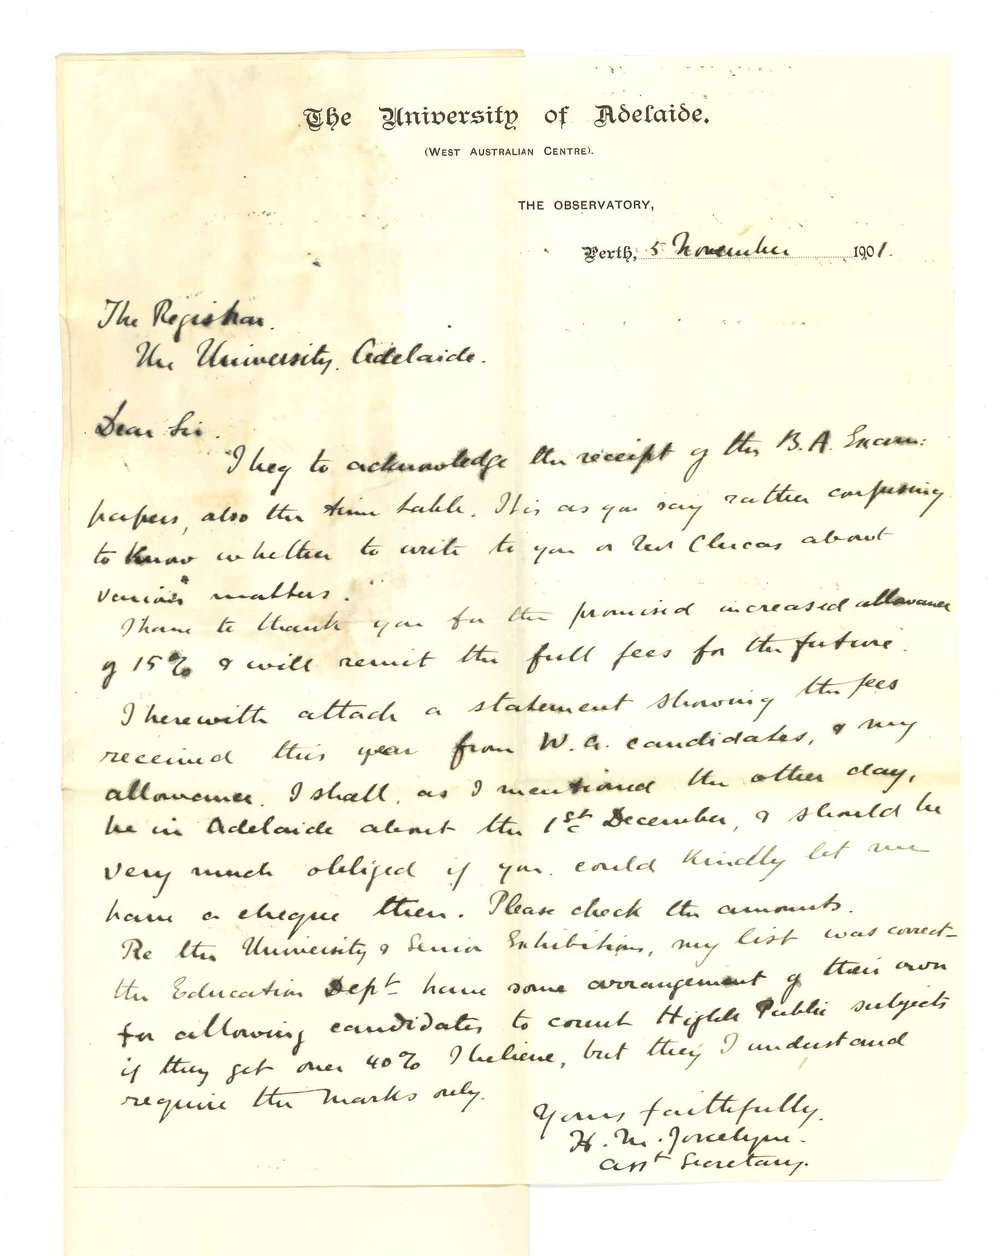 The University of Adelaide.
(West Australian Centre).
THE OBSERVATORY,
Perth, 5 November 1901.
The Registrar.
The University. Adelaide.
Dear Sir.
I beg to acknowledge the receipt of the B.A. Exam:
papers, also the time table. It is as you say rather confusing
to know whether to write to you or Mr Clucas about
various matters.
I have to thank you for the promised increased allowance
of 15% & will remit the full fees for the future.
I herewith attach a statement showing the fees
received this year from W.A. candidates, & my
allowance. I shall, as I mentioned the other day,
be in Adelaide about the 1st December, & should be
very much obliged if you could kindly let me
have a cheque then. Please check the amounts.
Re the University & Senior Exhibitions, my list was correct -
the Education Dept have some arrangement of their own
for allowing candidates to count Higher Public subjects
if they get over 40% I believe, but they I understand
require the marks only.
Yours faithfully.
H. M. Jocelyne.
Asst Secretary.